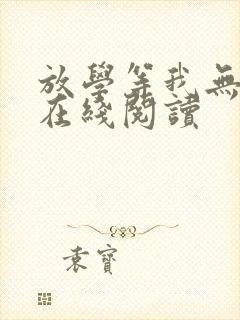 放學等我無
在綫閱讀
袁寶